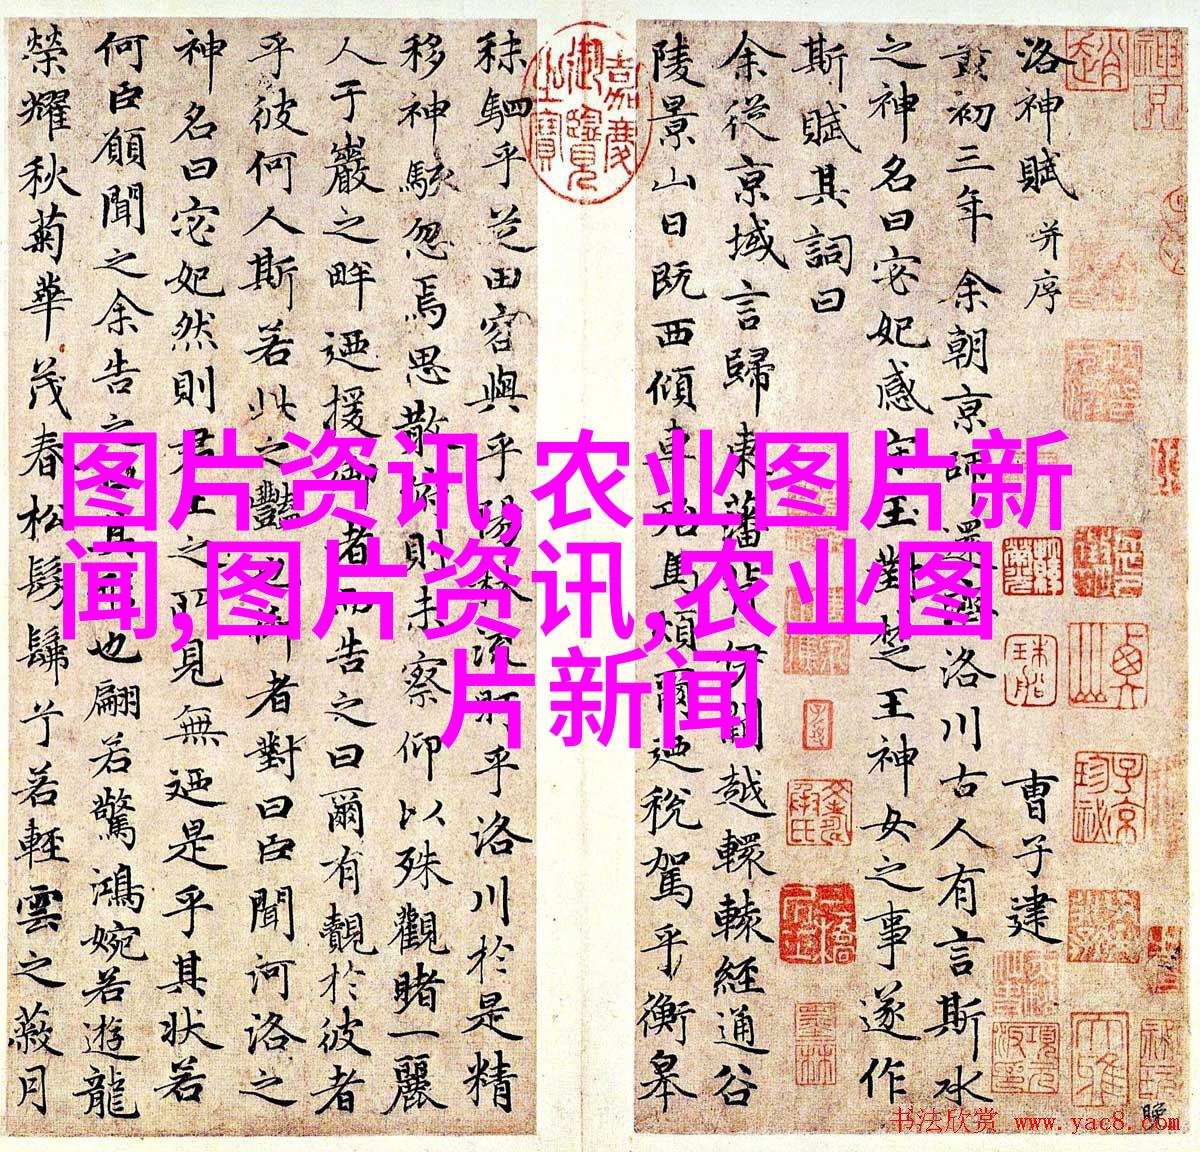 洛神賦 并序 曹子建
黃初三年余朝京師還濟洛川古人有言斯水
之神名曰宓妃感宋玉對楚王神女之事遂作
斯賦其詞曰
余從京域言歸東藩背伊闕越轘轅經通谷
陵景山日既西傾車殆馬煩爾迺稅駕乎衡皋
秣駟乎芝田容與乎陽林流眄乎洛川於是精
移神駭忽焉思散俯則未察仰以殊觀睹一麗
人于巖之畔迺援御者而告之曰爾有覿於彼者
乎彼何人斯若此之豔也御者對曰臣聞河洛之
神名曰宓妃然則君王之所見無迺是乎其狀若
何臣願聞之余告之曰其形也翩若驚鴻婉若遊龍
榮耀秋菊華茂春松髣髴兮若輕雲之蔽月
嘉慶御覽之寶
图片资讯,农业图片新
闻,图片资讯,农业图
片新闻
书法欣赏 www.yac8.com